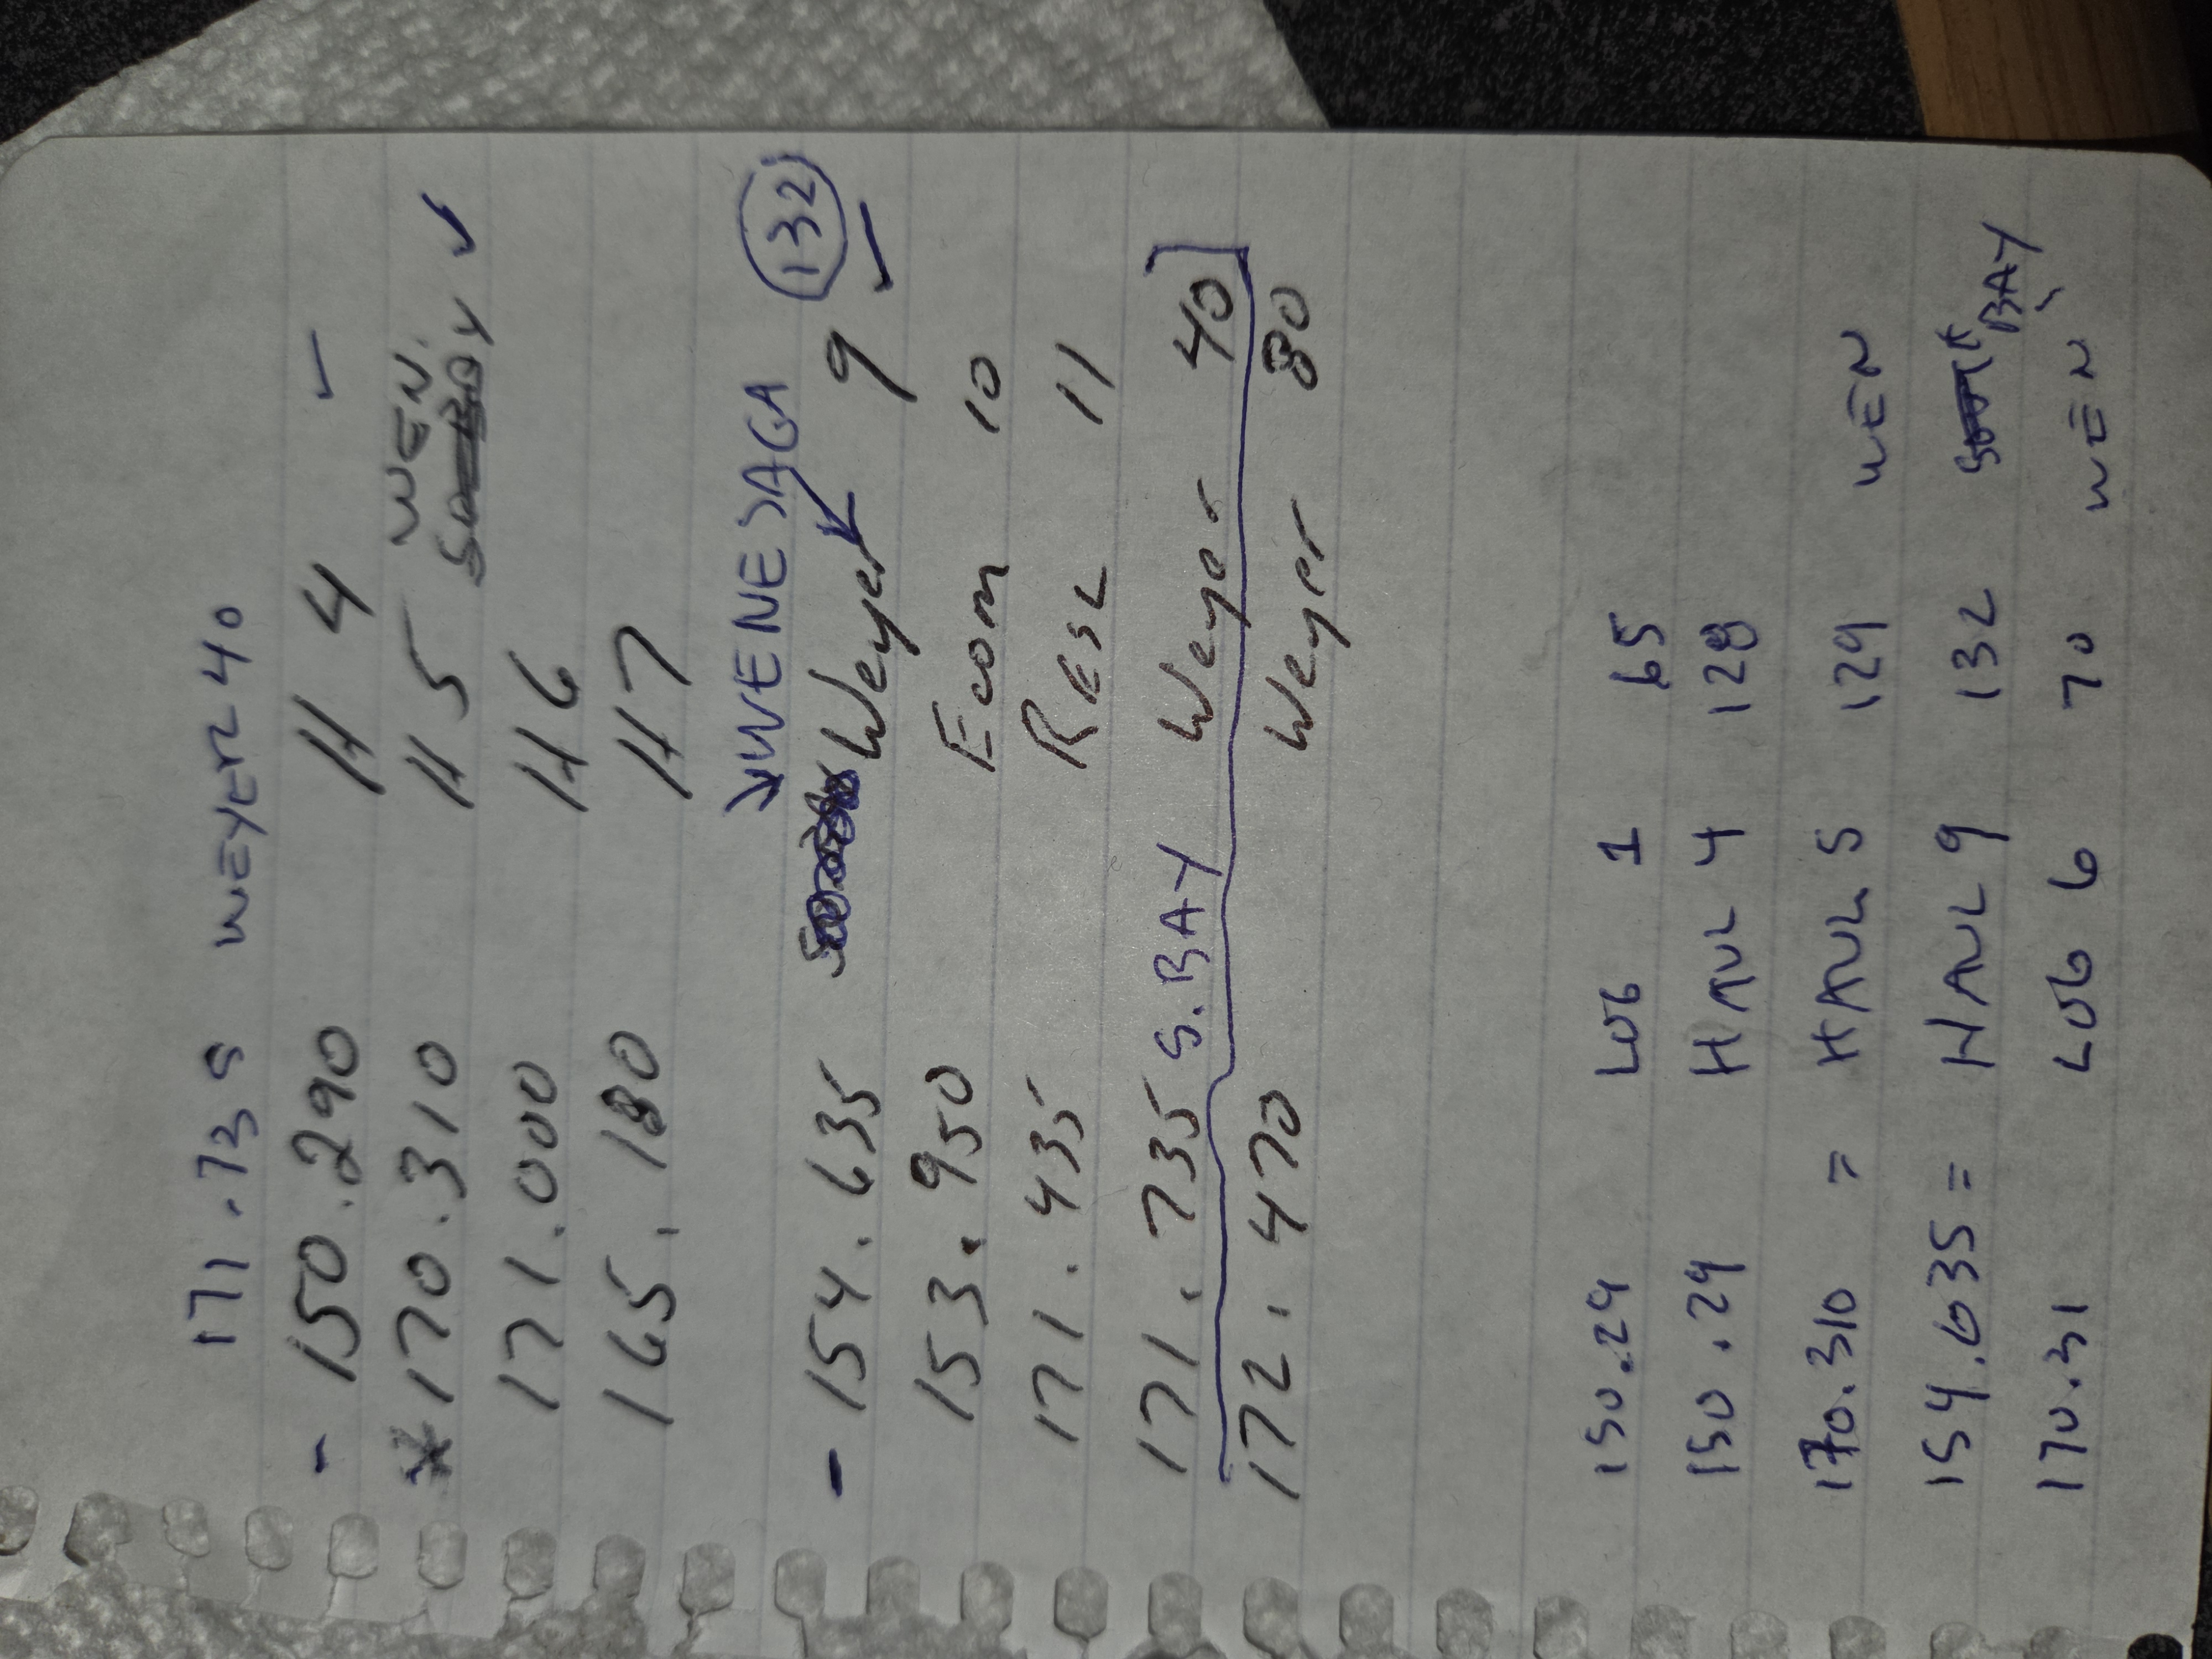 171.735 WEYER 40
- 150.290 H 4 -
*170.310 H 5 WEN. ✓
171.000 H 6
165.180 H 7
WENESAGA 132
- 154.635 Weyer 9 -
153.950 Ecom 10
171.435 RESL 11
171.735 S.BAY Weyer 40]
172.470 Weyer 80
150.29 LOG 1 65
150.29 HAUL 4 128
170.310 = HAUL 5 129 WEN
154.635 = HAUL 9 132 BAY
170.31 LOG 6 70 WEN